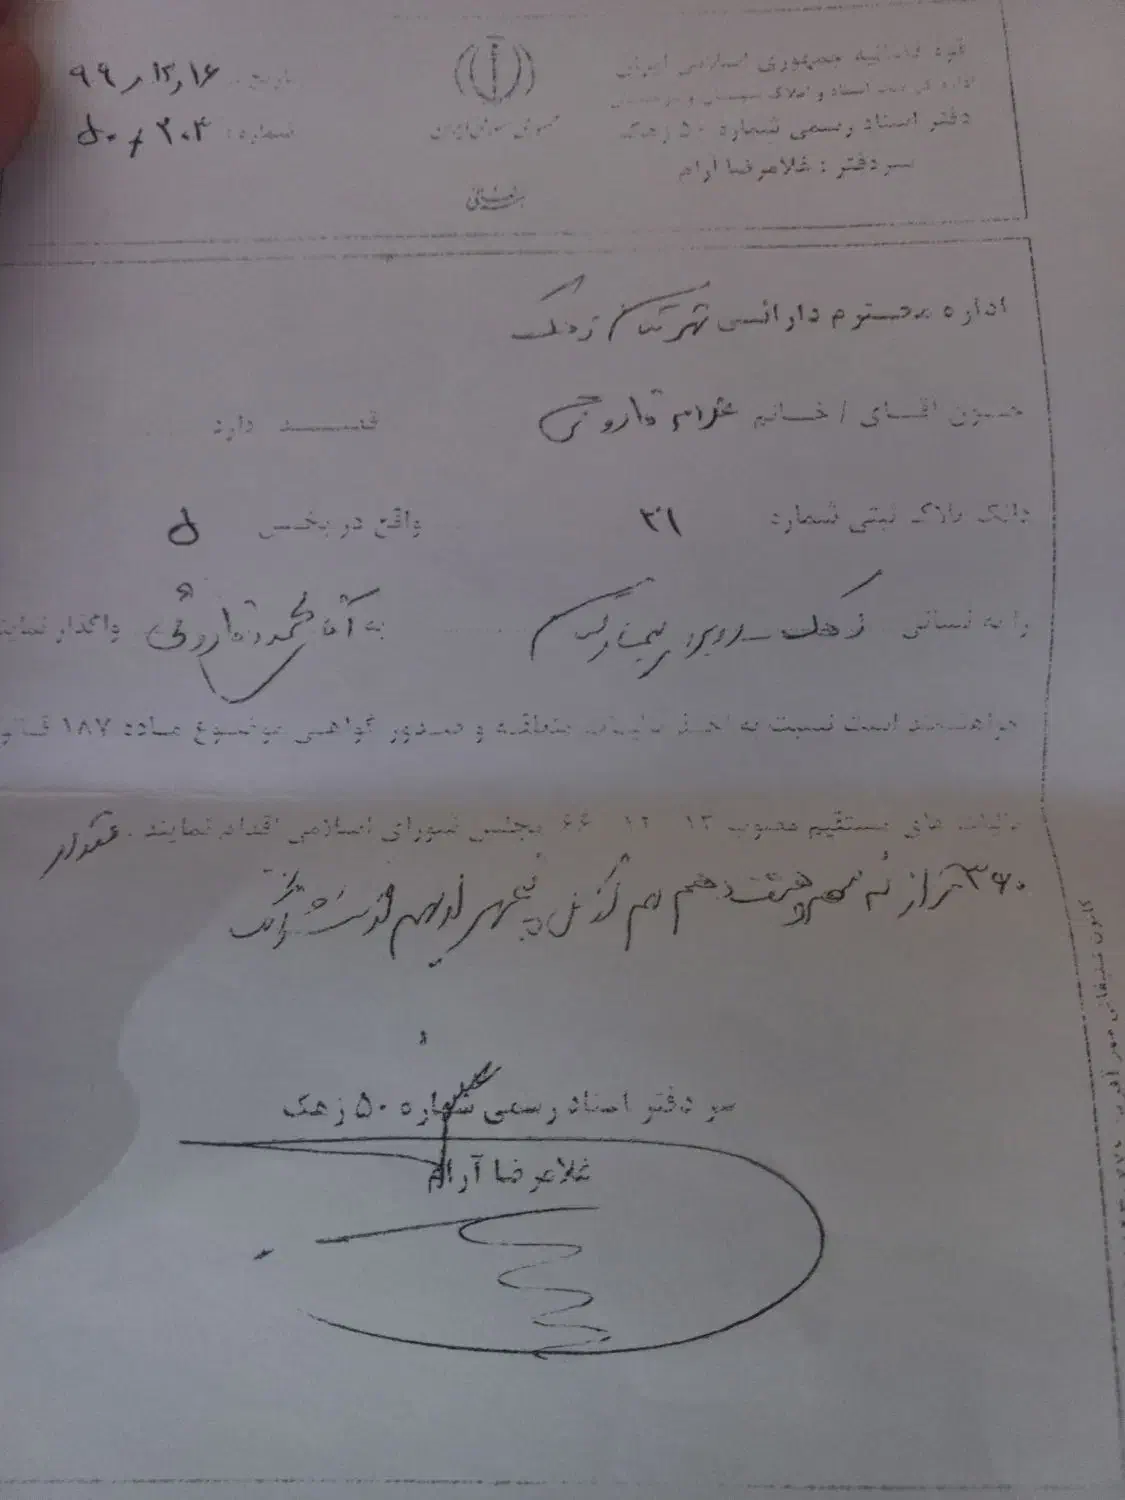 قوه قضائیه جمهوری اسلامی ایران
اداره کل ثبت اسناد و املاک سیستان و بلوچستان
دفتر اسناد رسمی شماره ۵۰ زهک
سردفتر : غلامرضا آرام
تاریخ : ۹۹/۱۲/۱۶
شماره : ۵۰/۲۰۴
اداره محترم دارائی شهرستان زهک
چون آقای / خانم غلام فاروقی قصد دارد
دانگ پلاک ثبتی شماره ۳۱ واقع در بخش ۵
را به نشانی زهک روبروی بیمارستان به آقا محمود فاروقی واگذار نماید
خواهشمند است نسبت به اخذ مالیات متعلقه و صدور گواهی موضوع ماده ۱۸۷
مالیات های مستقیم مصوب ۶۶ ۱۲ ۱۳ مجلس شورای اسلامی اقدام نمایند . مقدار
۳۶۰ متر از نه سهم و هشت دهم سهم از
سر دفتر اسناد رسمی شماره ۵۰ زهک
غلامرضا آرام